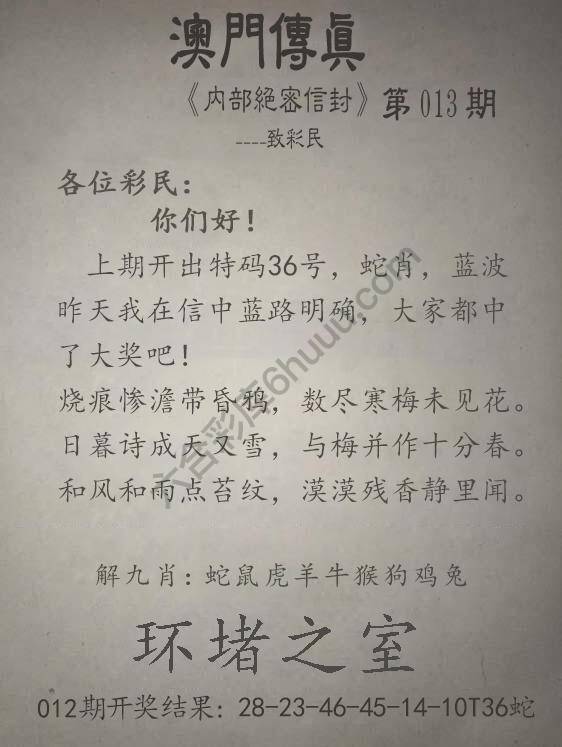 澳門傳眞
《内部絕密信封》第013期
----致彩民
各位彩民：
你们好！
上期开出特码36号，蛇肖，蓝波
昨天我在信中蓝路明确，大家都中
了大奖吧！
烧痕惨澹带昏鸦，数尽寒梅未见花。
日暮诗成天又雪，与梅并作十分春。
和风和雨点苔纹，漠漠残香静里闻。
解九肖：蛇鼠虎羊牛猴狗鸡兔
环堵之室
012期开奖结果：28-23-46-45-14-10T36蛇
六合彩库6huuu.com